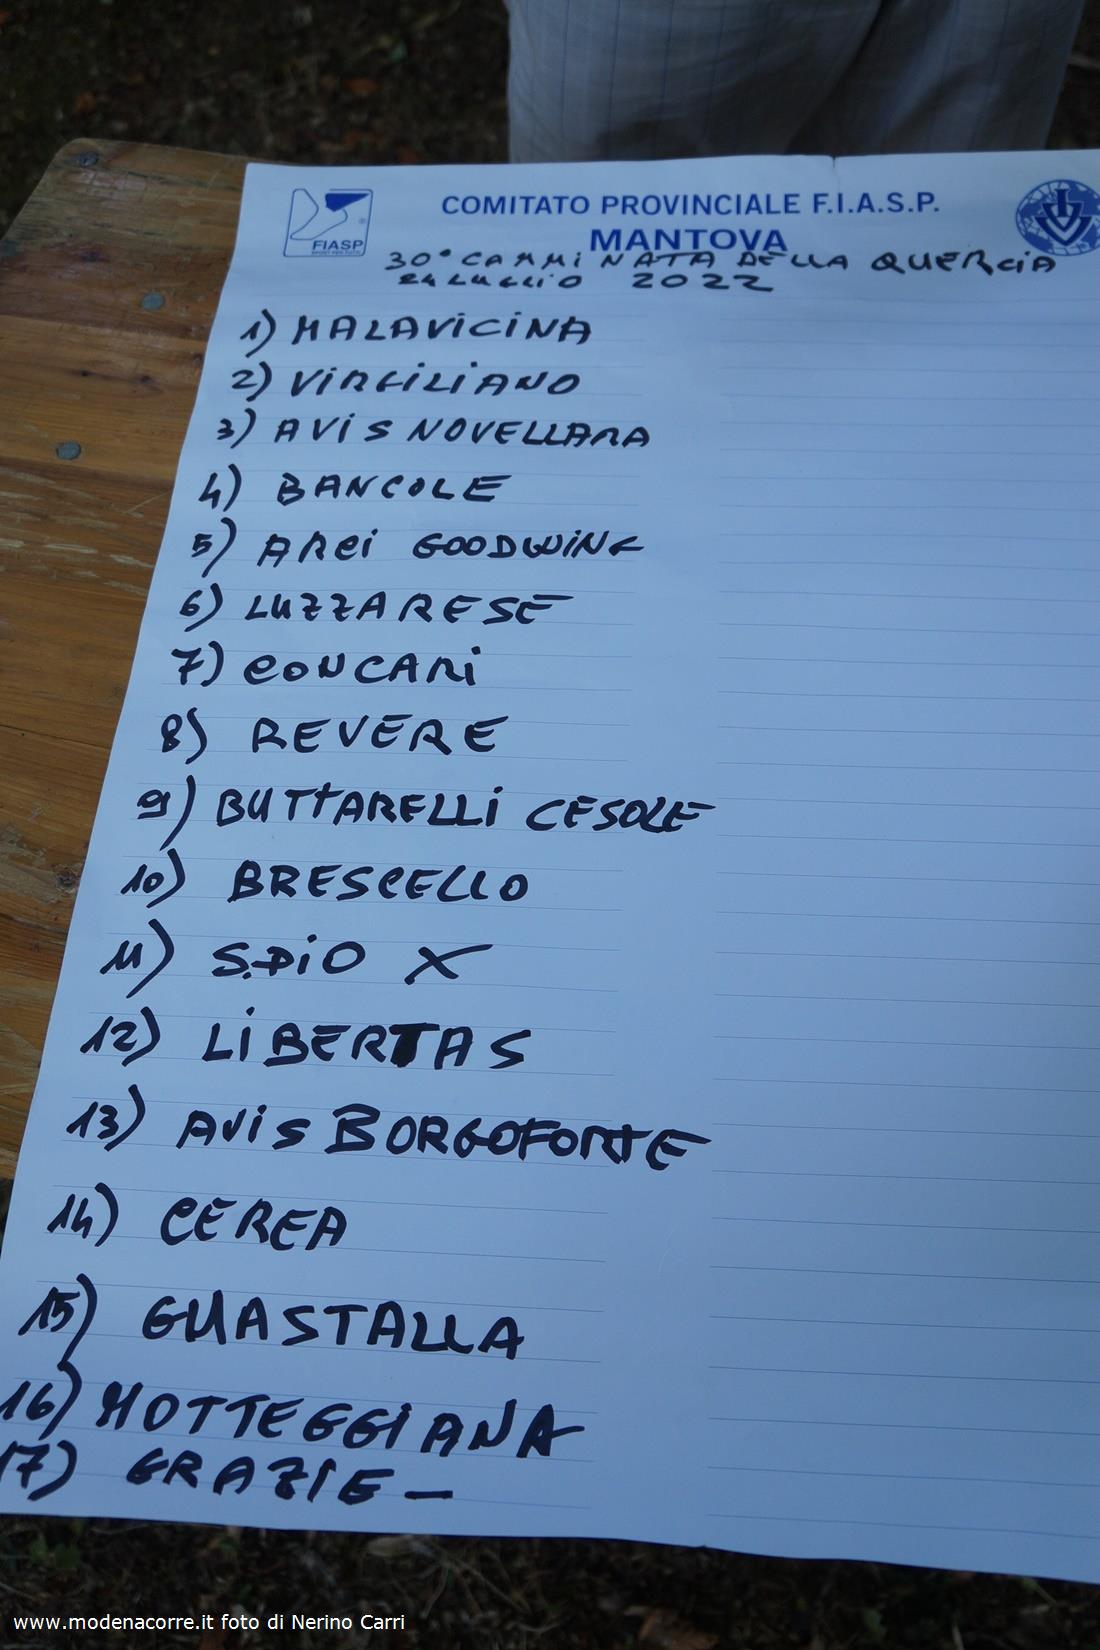 COMITATO PROVINCIALE F.I.A.S.P.
MANTOVA
FIASP
30° CAMMINATA DELLA QUERCIA
24 LUGLIO 2022
1) MALAVICINA
2) VIRGILIANO
3) AVIS NOVELLARA
4) BANCOLE
5) ARCI GOODWING
6) LUZZARESE
7) CONCARI
8) REVERE
9) BUTTARELLI CESOLE
10) BRESCELLO
11) S.PIO X
12) LIBERTAS
13) AVIS BORGOFORTE
14) CEREA
15) GUASTALLA
16) MOTTEGGIANA
17) GRAZIE —
www.modenacorre.it foto di Nerino Carri